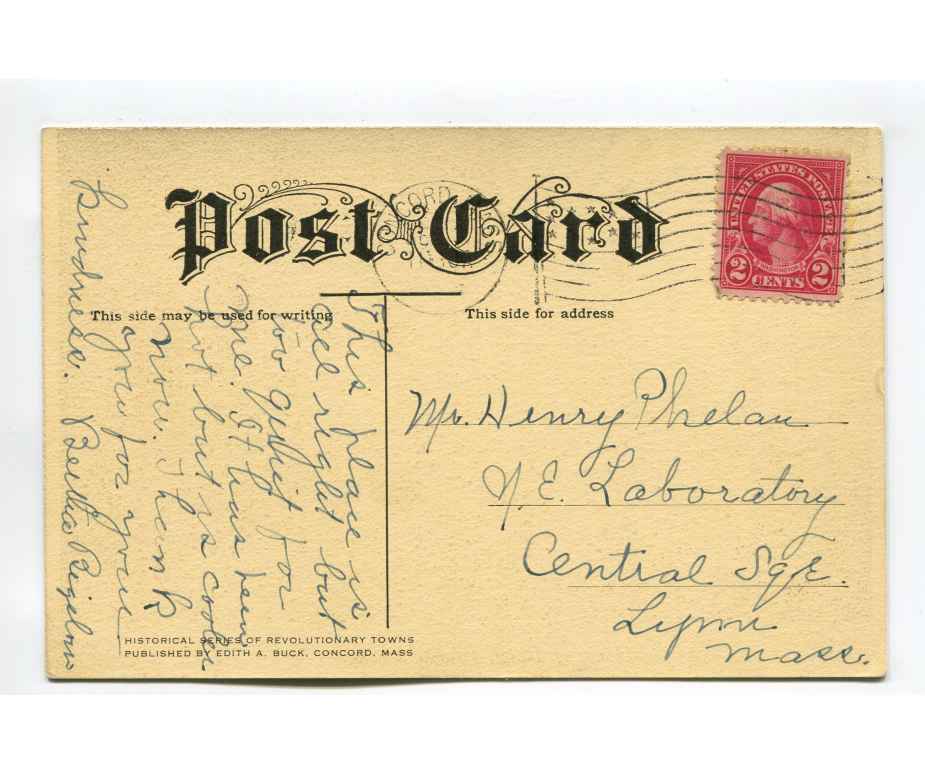 Post Card
CONCORD
UNITED STATES POSTAGE
WASHINGTON
2 CENTS 2
This side may be used for writing
This side for address
This place is
all right but
too quiet for
me. It has been
hot but is cooler
now. Thank
you for your
kindness. Bertha Bigelow
Mr. Henry Phelan
N. E. Laboratory
Central Sqe.
Lynn
Mass.
HISTORICAL SERIES OF REVOLUTIONARY TOWNS
PUBLISHED BY EDITH A. BUCK, CONCORD, MASS